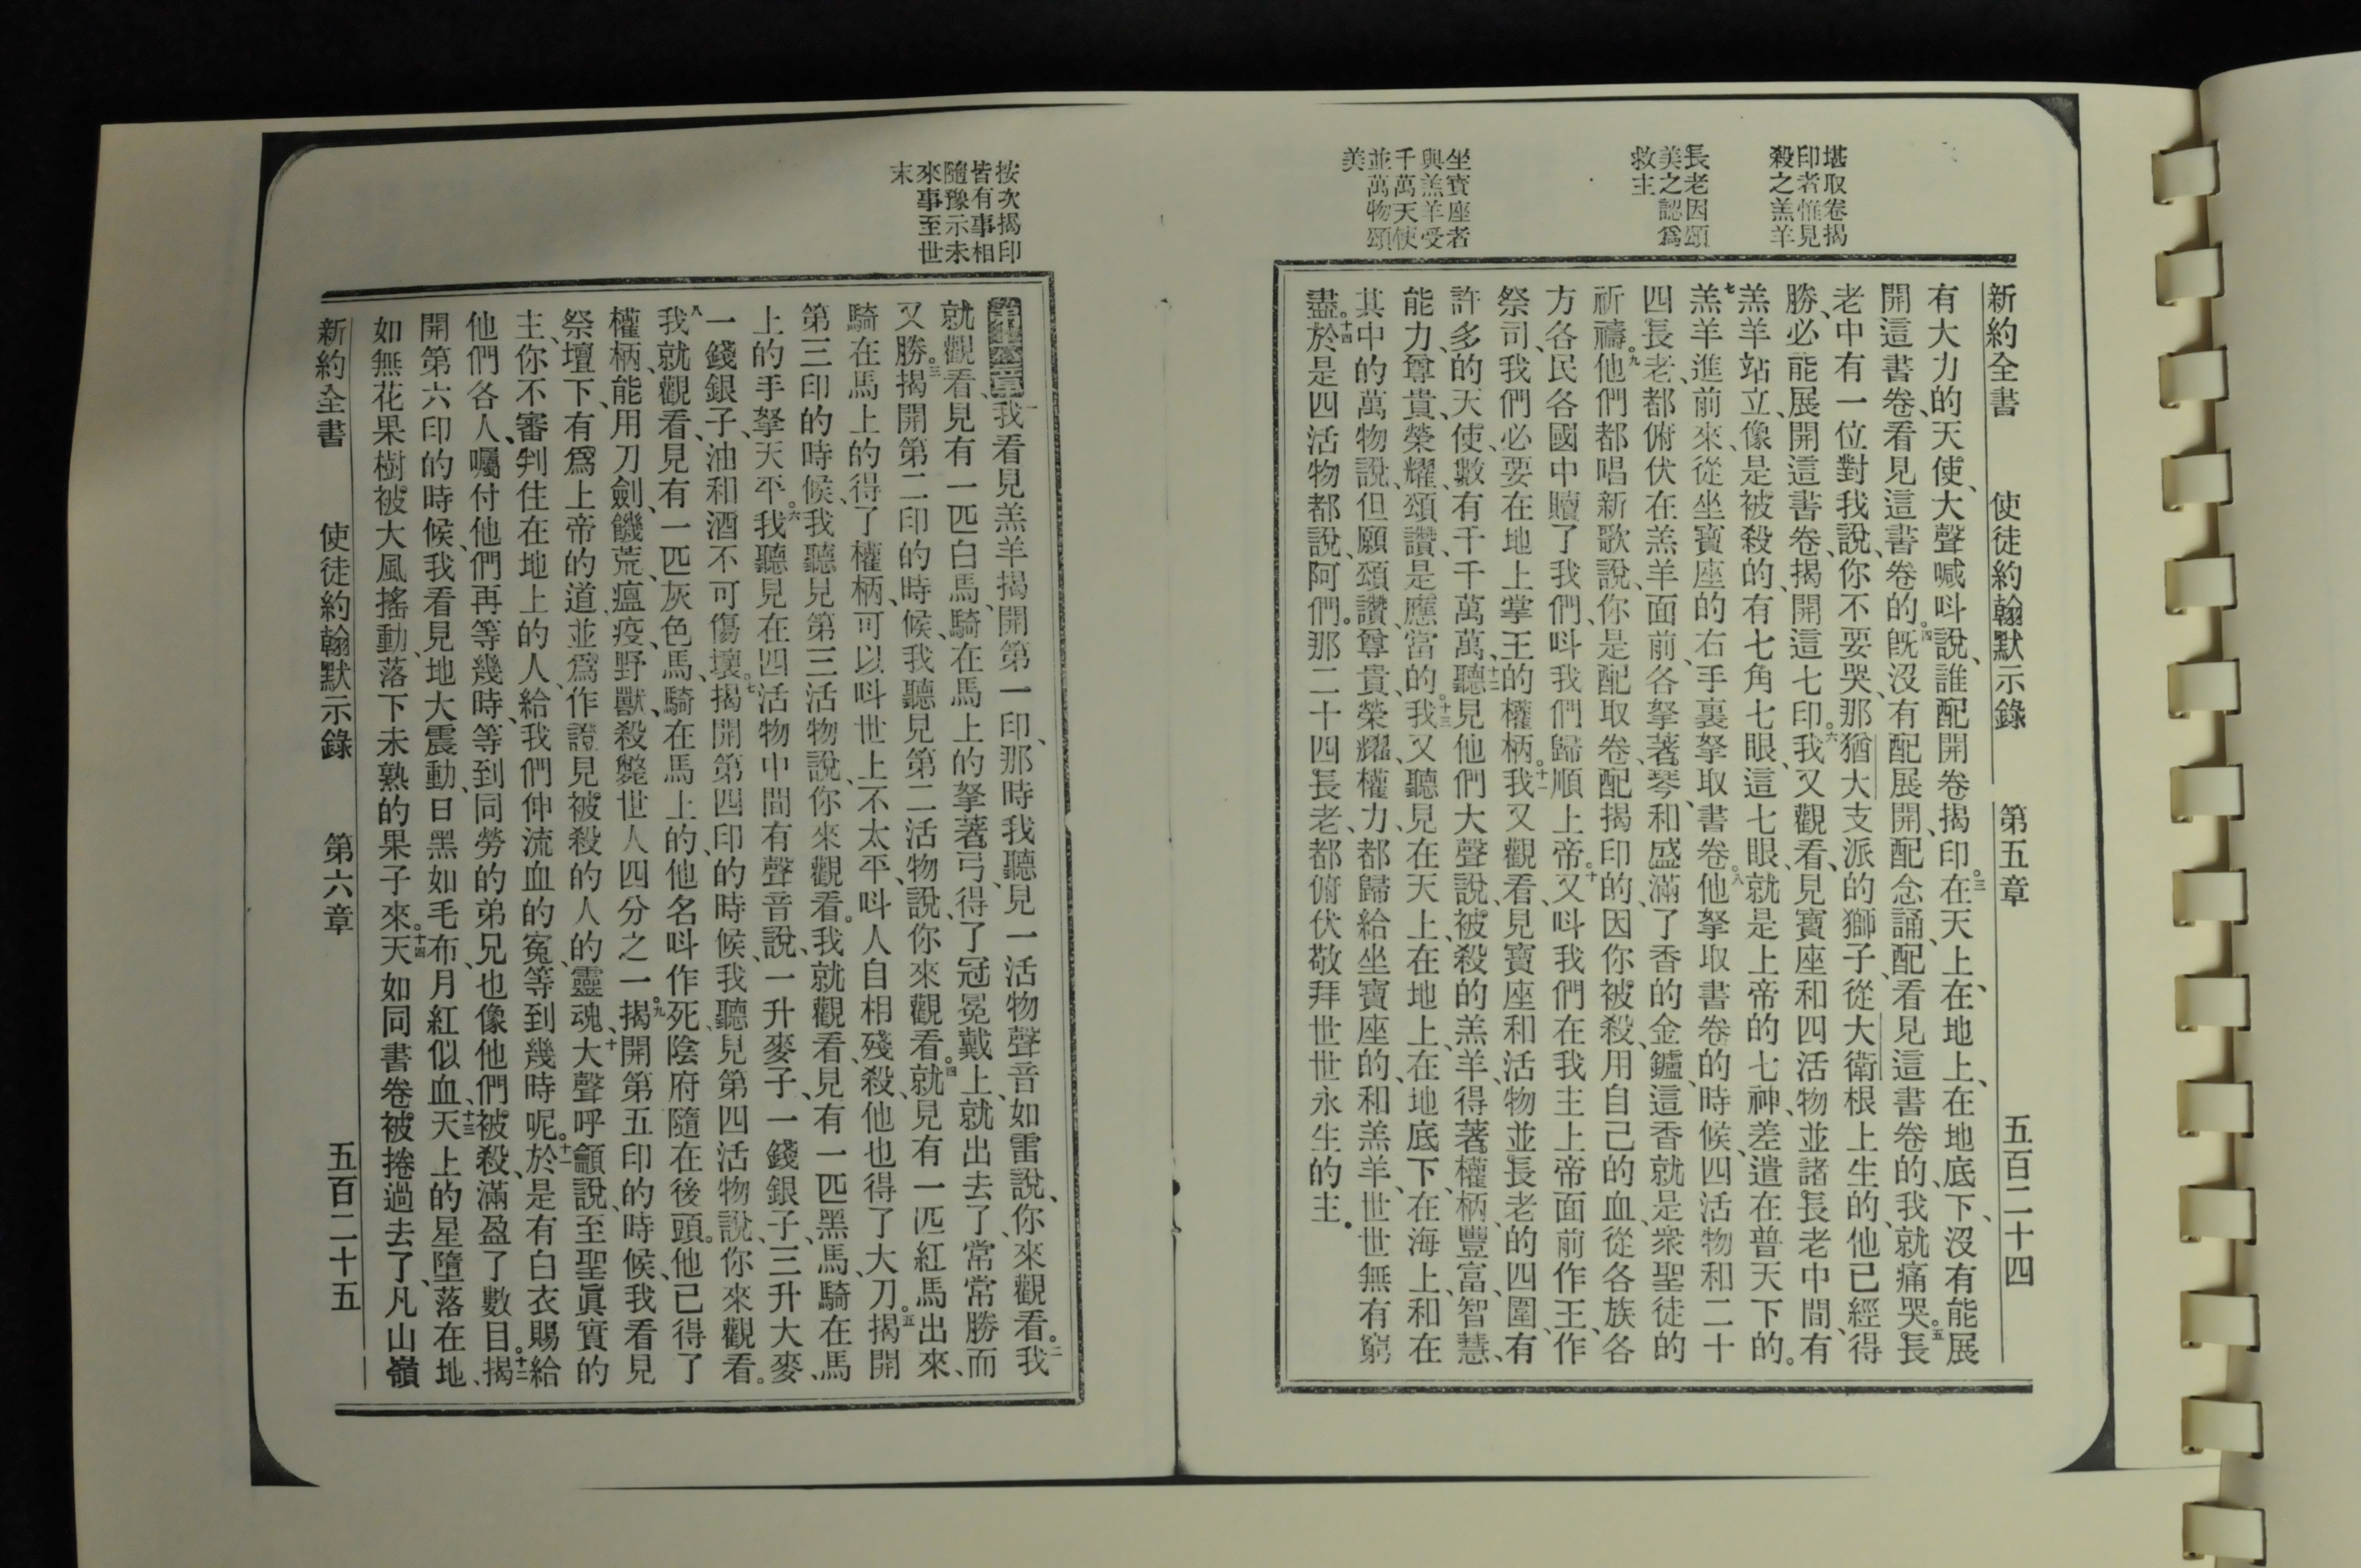 新約全書　使徒約翰默示錄　第五章　五百二十四
堪取卷揭
印者惟見
殺之羔羊
長老因頌
美之認爲
救主
坐寶座者
與羔羊受
千萬天使
並萬物頌
美
有大力的天使、大聲喊呌說、誰配開卷揭印。三在天上、在地上、在地底下、沒有能展
開這書卷、看見這書卷的。四旣沒有配展開、配念誦、配看見這書卷的、我就痛哭。五長
老中有一位對我說、你不要哭、那猶大支派的獅子、從大衛根上生的、他已經得
勝、必能展開這書卷、揭開這七印。六我又觀看、見寶座和四活物並諸長老中間、有
羔羊站立、像是被殺的、有七角七眼、這七眼、就是上帝的七神、差遣在普天下的。
七羔羊進前來、從坐寶座的右手裏拏取書卷。八他拏取書卷的時候、四活物和二十
四長老、都俯伏在羔羊面前、各拏著琴、和盛滿了香的金鑪、這香就是衆聖徒的
祈禱。九他們都唱新歌說、你是配取卷、配揭印的、因你被殺、用自己的血、從各族各
方、各民各國中贖了我們、呌我們歸順上帝。十又呌我們在我主上帝面前作王、作
祭司、我們必要在地上掌王的權柄。十一我又觀看、見寶座和活物並長老的四圍、有
許多的天使、數有千千萬萬、十二聽見他們大聲說、被殺的羔羊、得著權柄、豐富、智慧、
能力、尊貴、榮耀、頌讚、是應當的。十三我又聽見在天上、在地上、在地底下、在海上、和在
其中的萬物說、但願頌讚、尊貴、榮耀、權力、都歸給坐寶座的、和羔羊、世世無有窮
盡。十四於是四活物都說、阿們。那二十四長老、都俯伏敬拜世世永生的主。
按次揭印
皆有事相
隨豫示未
來事至世
末
第六章一我看見羔羊揭開第一印、那時我聽見一活物聲音如雷說、你來觀看。二我
就觀看、見有一匹白馬、騎在馬上的拏著弓、得了冠冕戴上、就出去了、常常勝而
又勝。三揭開第二印的時候、我聽見第二活物說、你來觀看。四就見有一匹紅馬出來、
騎在馬上的、得了權柄、可以呌世上不太平、呌人自相殘殺、他也得了大刀。五揭開
第三印的時候、我聽見第三活物說、你來觀看。我就觀看、見有一匹黑馬、騎在馬
上的手拏天平。六我聽見在四活物中間有聲音說、一升麥子、一錢銀子、三升大麥、
一錢銀子、油和酒不可傷壞。七揭開第四印的時候、我聽見第四活物說、你來觀看。
八我就觀看、見有一匹灰色馬、騎在馬上的、他名呌作死、陰府隨在後頭。他已得了
權柄、能用刀劍、饑荒、瘟疫、野獸、殺斃世人四分之一。九揭開第五印的時候、我看見
祭壇下、有爲上帝的道、並爲作證見被殺的人的靈魂、十大聲呼籲說、至聖眞實的
主、你不審判住在地上的人、給我們伸流血的寃、等到幾時呢。十一於是有白衣賜給
他們各人、囑付他們再等幾時、等到同勞的弟兄也像他們被殺、滿盈了數目。十二揭
開第六印的時候、我看見地大震動、日黑如毛布、月紅似血、十三天上的星墮落在地、
如無花果樹被大風搖動、落下未熟的果子來。十四天如同書卷被捲過去了、凡山嶺
新約全書　使徒約翰默示錄　第六章　五百二十五